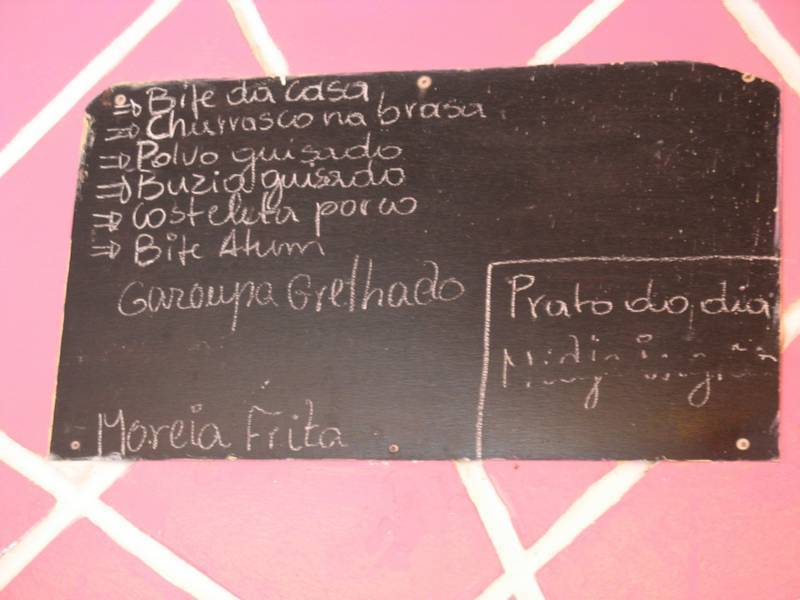 ⇒ Bife da casa
⇒ Churrasco na brasa
⇒ Polvo guisado
⇒ Buzia guisado
⇒ Costeleta porco
⇒ Bife Atum
Garoupa Grelhado
Prato do dia
Moreia Frita